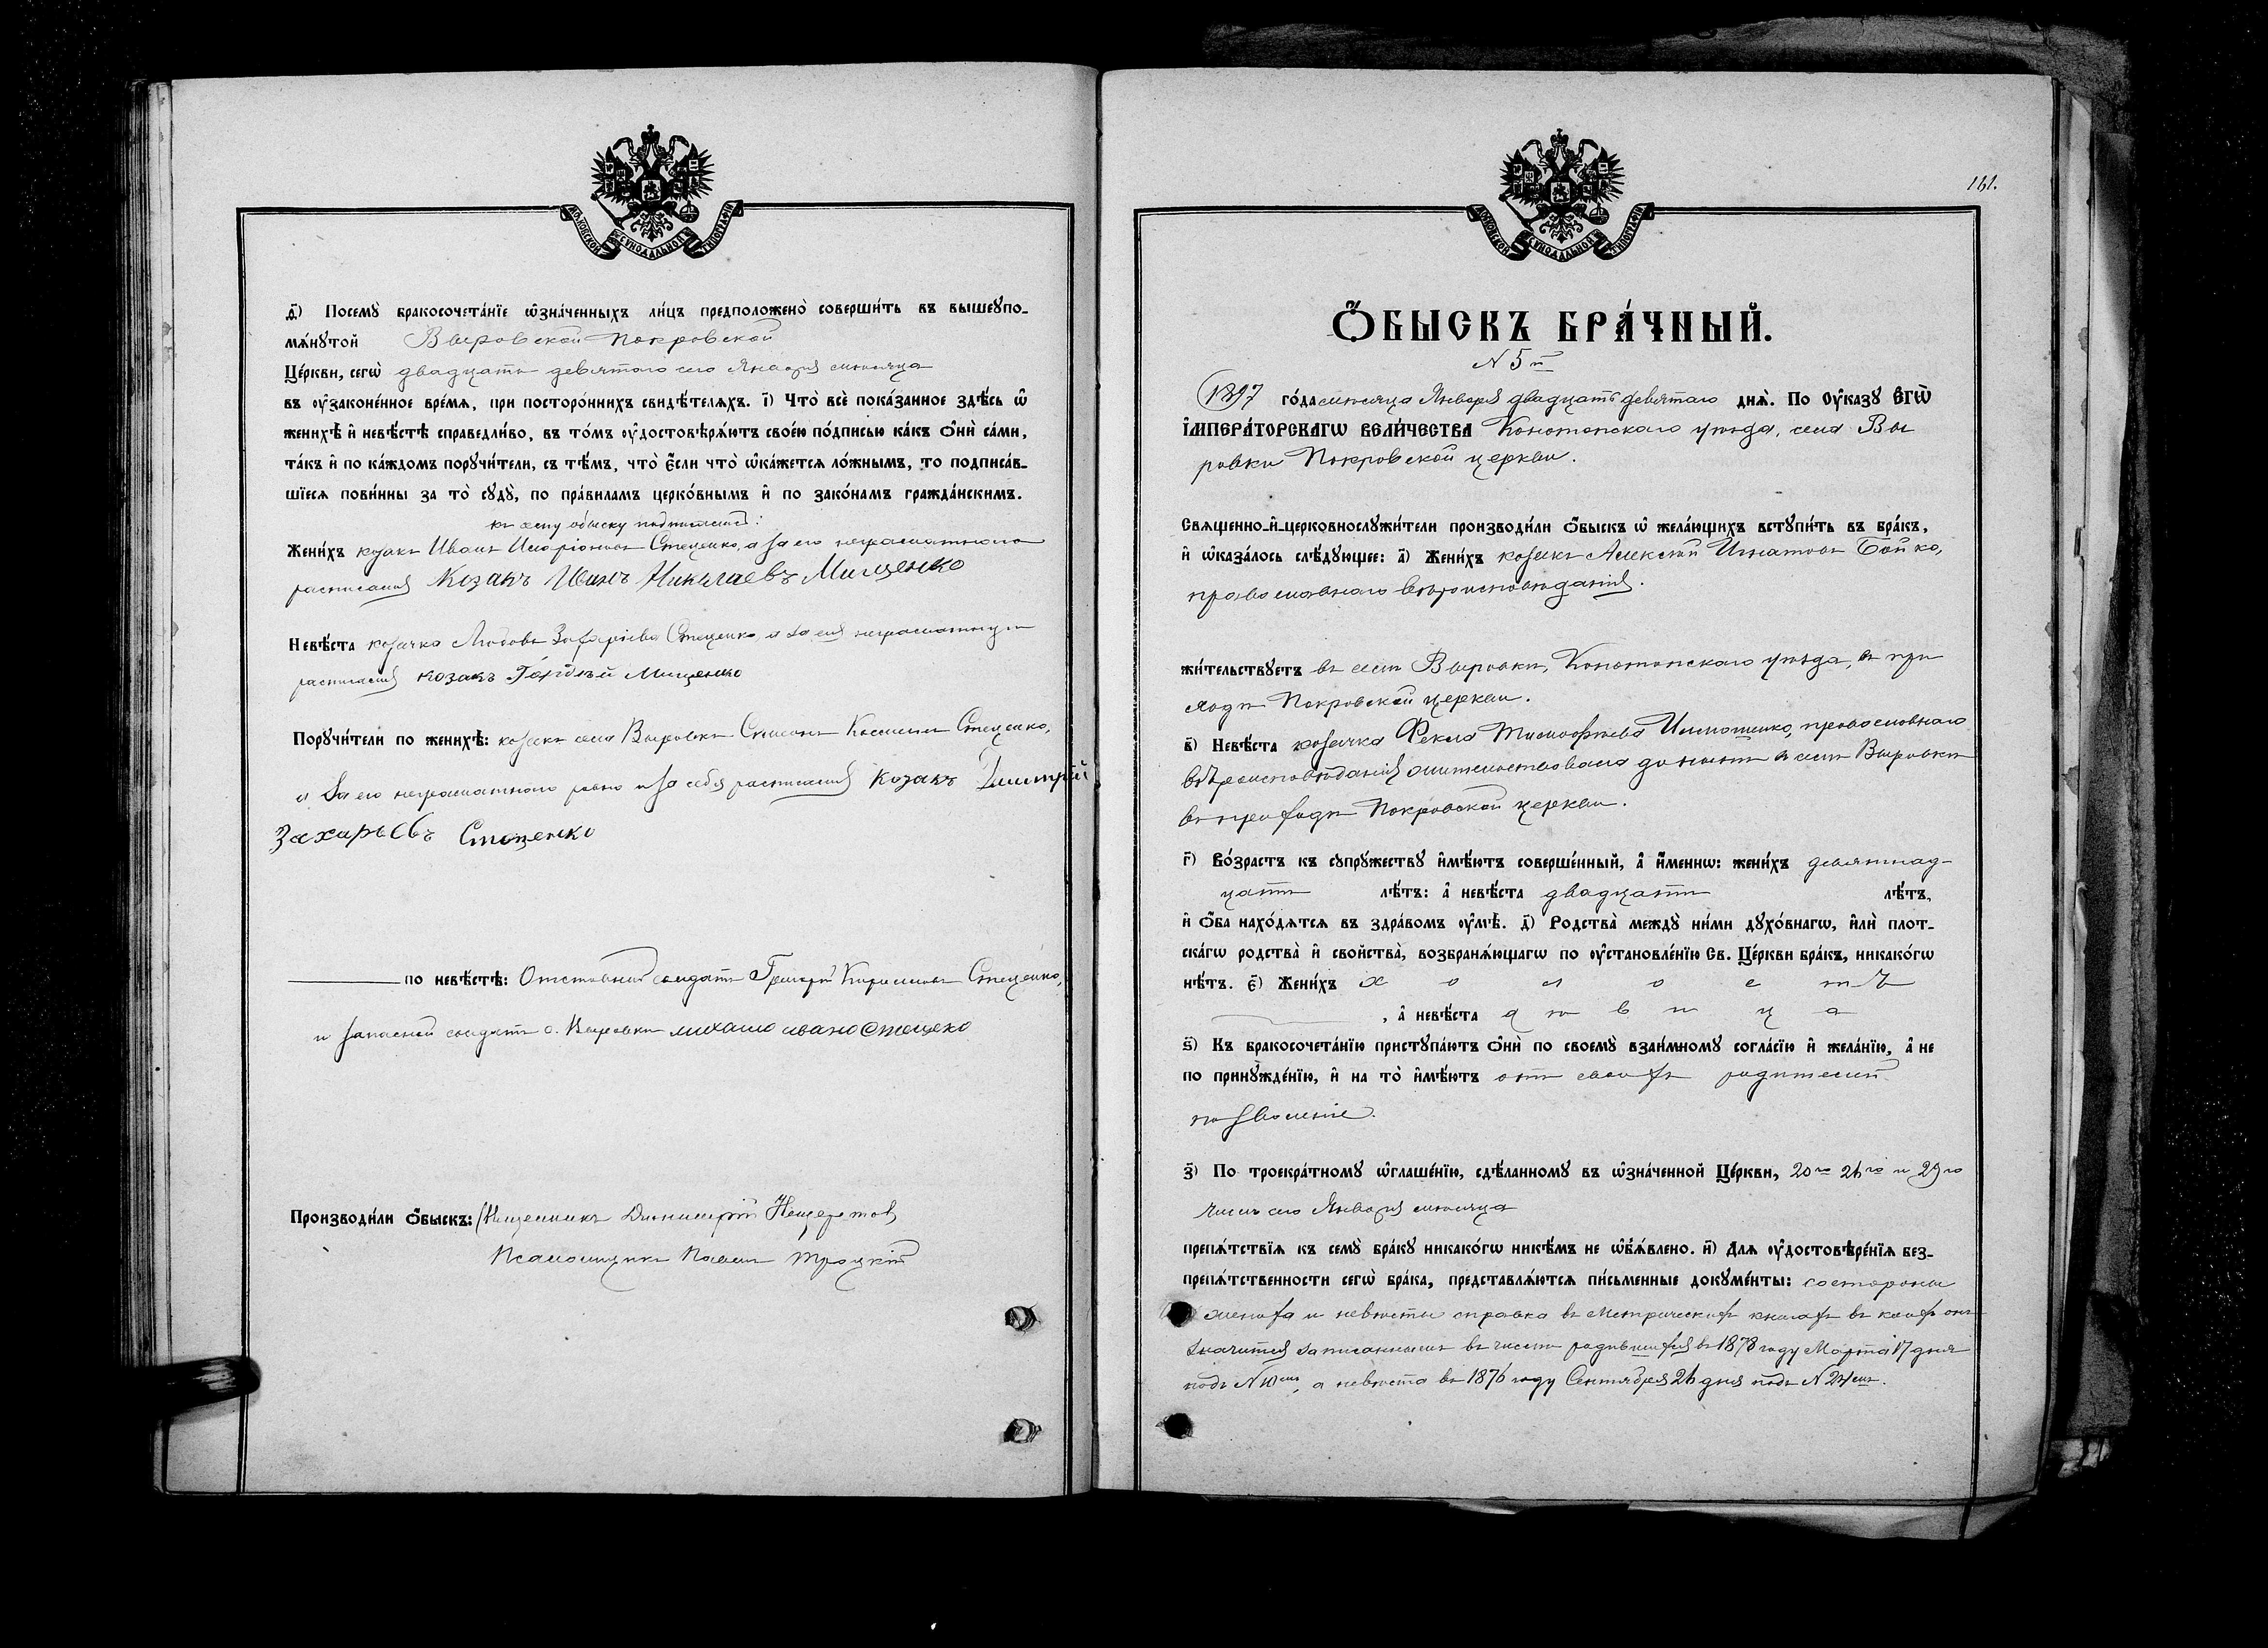 МОСКОВСКОЙ СѴНОДАЛЬНОЙ ТИПОГРАФІИ
д҃і) Посемꙋ̀ бракосочета́нїе ѡ҆зна́ченныхъ ли́цъ предположено̀ соверши́ть въ вышеꙋпо-
мѧ́нꙋтой Выровской Покровской
Це́ркви, сегѡ̀ двадцать девятого сего Января мѣсяца
въ ᲂу҆законе́нное вре́мѧ, при посторо́ннихъ свидѣ́телѧхъ. і҃) Что̀ всѐ пока́занное здѣ́сь ѡ҆
женихѣ̀ и҆ невѣ́стѣ справедли́во, въ то́мъ ᲂу҆достовѣрѧ́ютъ свое́ю по́дписью ка́къ ѻ҆нѝ са́ми,
та́къ и҆ по ка́ждомъ поручи́тели, съ тѣ́мъ, что̀ є҆́сли что̀ ѡ҆ка́жетсѧ ло́жнымъ, то подписа́в-
шїесѧ пови́нны за то̀ сꙋдꙋ̀, по пра́виламъ церко́внымъ и҆ по зако́намъ гражда́нскимъ.
къ сему обыску подписались:
Жени́хъ козакъ Иванъ Иларіоновъ Стеценко, а за его неграмотного
расписался Козакъ Иванъ Николаевъ Мищенко
Невѣ́ста козачка Любовь Захаріева Стеценко, а за ея неграмотную
расписался козакъ Гордѣй Мищенко
Порꙋчи́тели по женихѣ̀: козакъ села Выровки Симеонъ Косминъ Стеценко,
а за его неграмотного равно и за себя расписался Козакъ Димитрій
Захарьевъ Стеценко
по невѣ́стѣ: Отставный солдатъ Григорій Кириловъ Стеценко,
и запасной солдатъ с. Выровки михаило ивано Стецеко
Производи́ли ѻ҆́быскъ: Священникъ Димитрій
Псаломщикъ Павелъ Троцкій
161.
МОСКОВСКОЙ СѴНОДАЛЬНОЙ ТИПОГРАФІИ
Ѻ҆́БЫСКЪ БРА́ЧНЫЙ.
N 5й
1897 го́да мѣсяца Января двадцать девятаго днѧ̀. По Оу҆́казꙋ Є҆ГѠ̀
І҆МПЕРА́ТОРСКАГѠ ВЕЛИ́ЧЕСТВА Конотопскаго уѣзда, села Вы
ровки Покровской церкви.
Свѧщенно-и҆-церковнослꙋжи́тели производи́ли ѻ҆́быскъ ѡ҆ жела́ющихъ встꙋпи́ть въ бра́къ,
и҆ ѡ҆каза́лось слѣ́дующее: а҃) Жени́хъ козакъ Алексѣй Игнатовъ Бойко,
православнаго вѣроисповѣданія.
жи́тельствꙋетъ въ селѣ Выровки, Конотопскаго уѣзда, въ при
ходѣ Покровской церкви.
в҃) Невѣ́ста козачка Фекла Тимофѣева православнаго
вѣроисповѣданія жительствовала до нынѣ въ селѣ Выровки
въ приходѣ Покровской церкви.
г҃) Во́зрастъ къ сꙋпрꙋ́жествꙋ и҆мѣ́ютъ соверше́нный, а҆ и҆́меннѡ: жени́хъ девятнад-
цать лѣ́тъ: а҆ невѣ́ста двадцать лѣ́тъ,
и҆ ѻ҆́ба нахо́дѧтсѧ въ здра́вомъ ᲂу҆мѣ̀. д҃) Родства̀ междꙋ̀ ни́ми дꙋхо́внагѡ, и҆лѝ плот-
ска́гѡ родства̀ и҆ свойства̀, возбранѧ́ющагѡ по ᲂу҆становле́нїю Св. Це́ркви бра́къ, никако́гѡ
нѣ́тъ. є҃) Жени́хъ холостъ
, а҆ невѣ́ста дѣвица
ѕ҃) Къ бракосочета́нїю пристꙋпа́ютъ ѻ҆нѝ по своемꙋ̀ взаи́мномꙋ согла́сїю и҆ жела́нїю, а҆ не
по принꙋжде́нїю, и҆ на то̀ и҆мѣ́ютъ отъ своихъ родителей
позволеніе.
з҃) По троекра́тномꙋ ѡ҆глаше́нїю, сдѣ́ланномꙋ въ ѡ҆зна́ченной Це́ркви, 20го 26го и 29го
чиселъ сего Января мѣсяца
препѧ́тствїѧ къ семꙋ̀ бра́кꙋ никако́гѡ никѣ́мъ не ѡ҆б̾ѧ́влено. и҃) Длѧ ᲂу҆достовѣре́нїѧ без-
препѧ́тственности сегѡ̀ бра́ка, представлѧ́ютсѧ пи́сьменные докꙋме́нты: состороны
жениха и невѣсты справка въ Метрическихъ книгахъ въ коихъ онъ
значится записаннымъ въ числѣ родившихся въ 1878 году Марта 17 дня
подъ N 10мъ, а невѣста въ 1876 году Сентября 26 дня подъ N 24мъ.